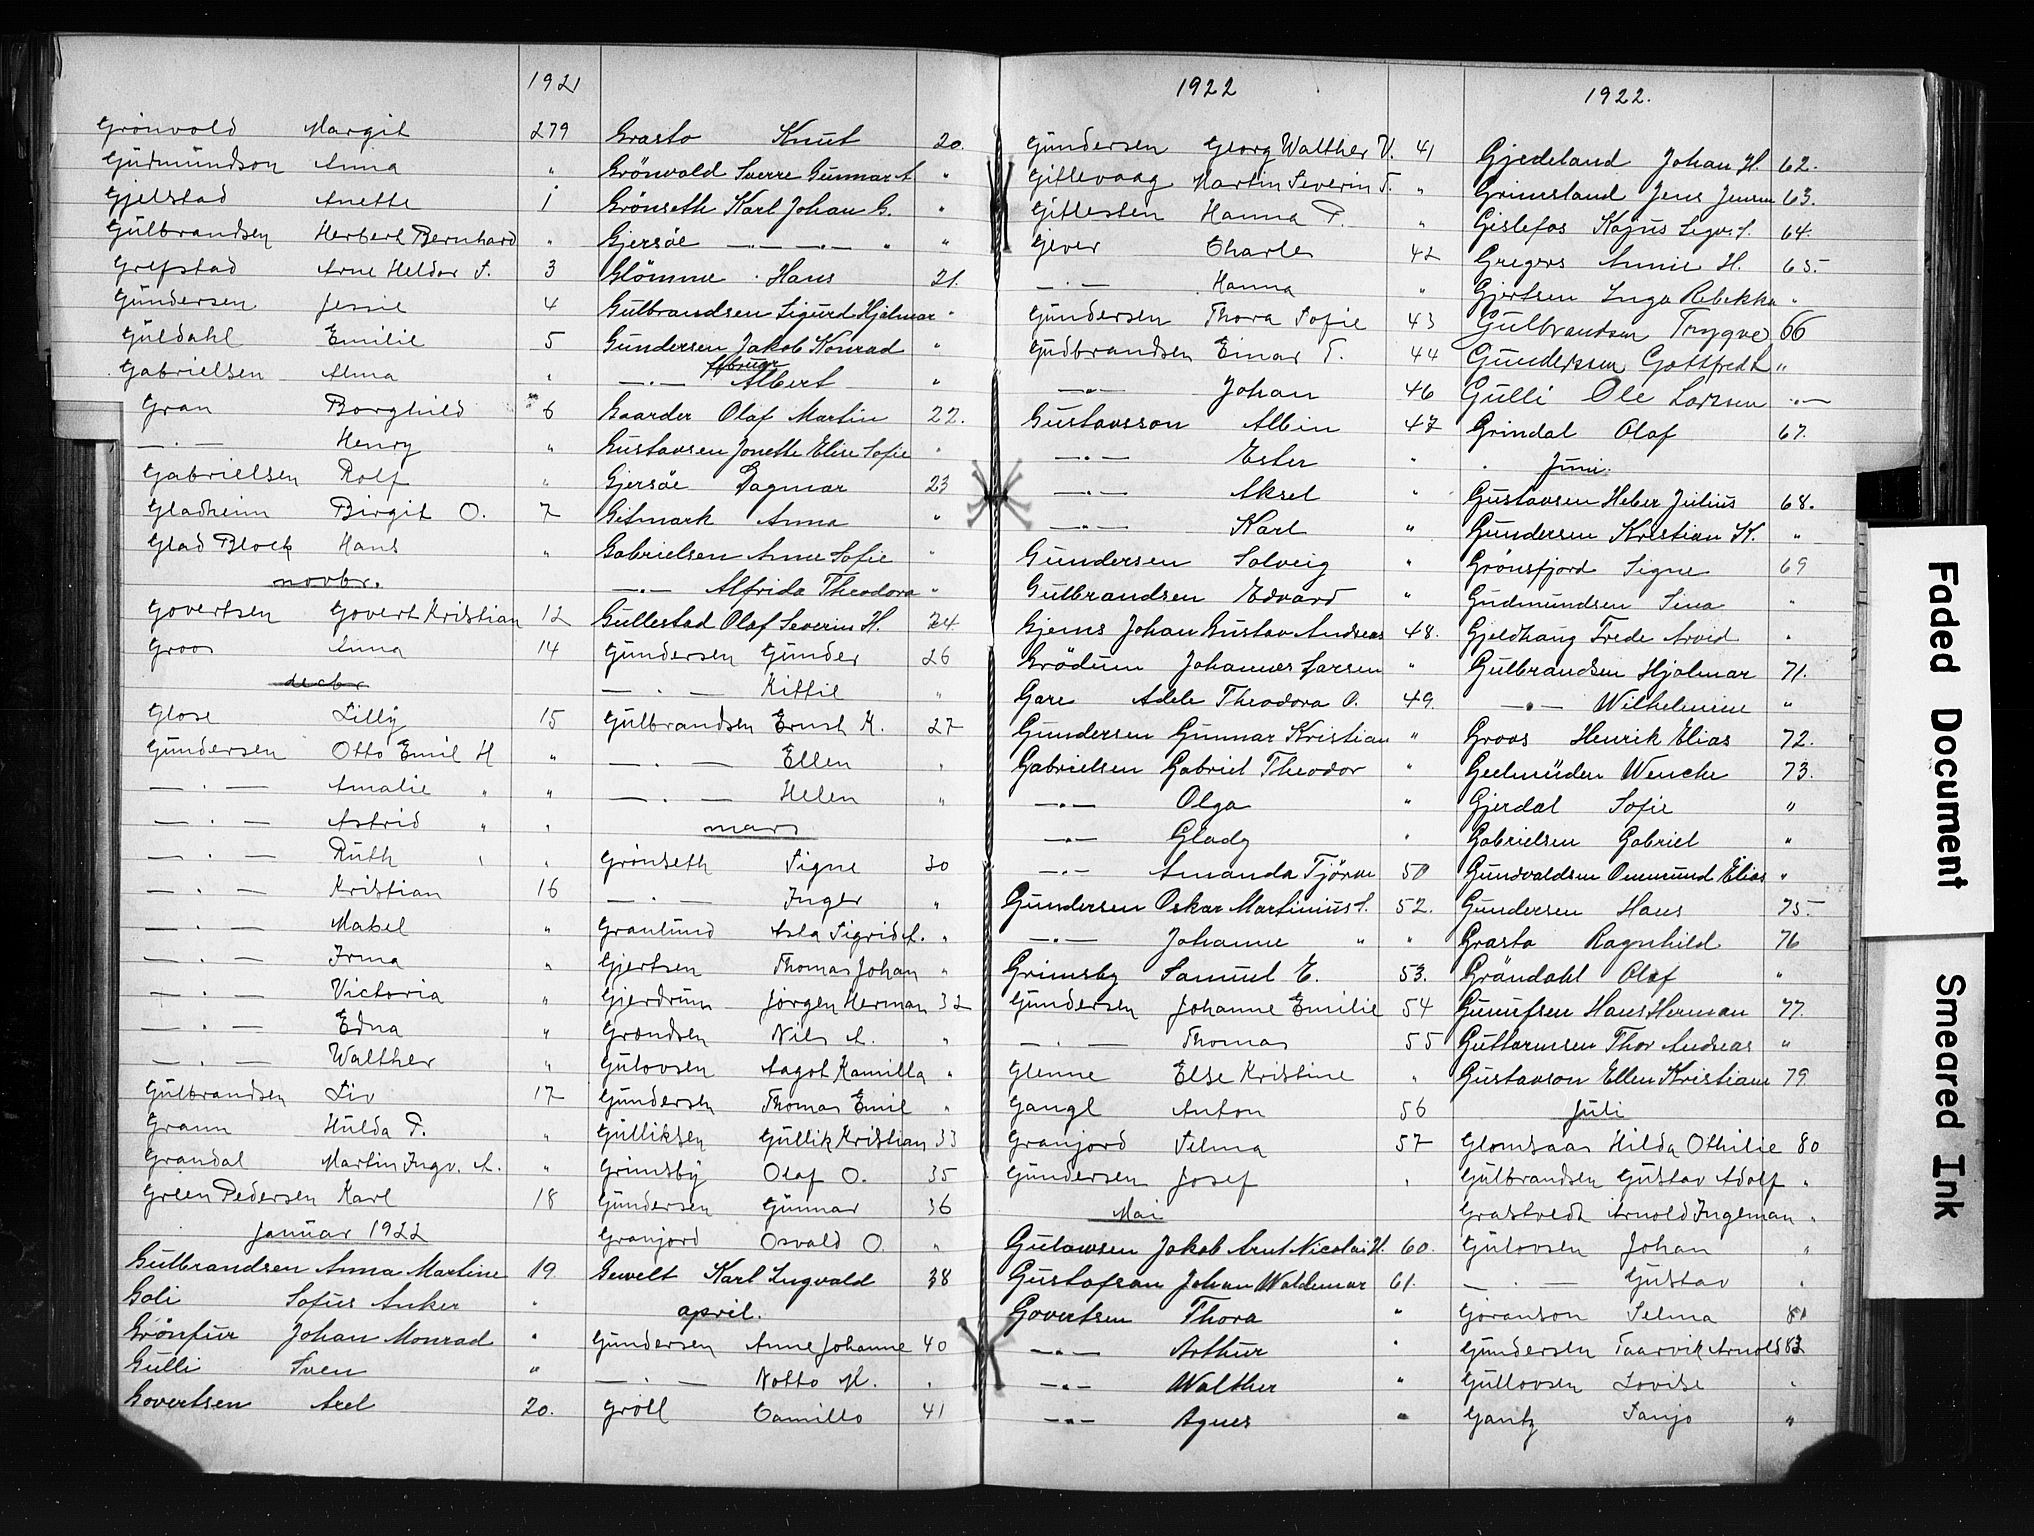 1921
Grönvold Margit 279
Gudmundson Anna "
Gjelstad Anette 1
Gulbrandsen Herbert Bernhard "
Grefstad Arne Heldor S. 3
Gundersen Jessie 4
Guldahl Emilie 5
Gabrielsen Alma "
Gran Borghild 6
—·— Henry "
Gabrielsen Rolf "
Gladheim Birgit O. 7
Glad Block Hans "
novbr.
Govertsen Govert Kristian 12
Groos Anna 14
decbr
Glose Lilly 15
Gundersen Otto Emil H "
—·— Amalie " "
—·— Astrid " "
—·— Ruth " "
—·— Kristian 16
—·— Mabel "
—·— Irma "
—·— Victoria "
—·— Edna "
—·— Walther "
Gulbrandsen Liv 17
Grann Hulda T. "
Grandal Martin Ingv. A. "
Green Pedersen Karl 18
Januar 1922
Gulbrandsen Anna Martine 19
Goli Sofus Anker "
Grönfur Johan Monrad "
Gulli Sven "
Govertsen Axel 20.
Grasto Knut 20.
Grönvold Sverre Gunnar A "
Grönseth Karl Johan G. "
Gjersöe —·— —·— " "
Glömme Hans 21.
Gulbrandsen Sigurd Hjalmar "
Gundersen Jakob Konrad "
februar
—·— Albert "
Gaarder Olaf Martin 22.
Gustavsen Jonette Elise Sofie "
Gjersöe Dagmar 23
Gitmark Anna "
Gabrielsen Anne Sofie "
—·— Alfrida Theodora "
Gullestad Olaf Severin H. 24
Gundersen Gunder 26
—·— Kittie "
Gulbrandsen Ernst K. 27
—·— Ellen "
—·— Helen "
mars
Grönseth Signe 30
—·— Inger "
Granlund Asla Sigrid A. "
Gjertsen Thomas Johan "
Gjerdrum Jörgen Herman 32
Grøndsen Nils A. "
Gulovsen Aagot Kamilla "
Gundersen Thomas Emil "
Gulliksen Gullik Kristian 33
Grimsby Olaf O. 35
Gundersen Gunnar 36
Granjord Osvald O. "
Gewelt Karl Ingvald 38
april.
Gundersen Anne Johanne 40
—·— Notto M. "
Gröll Camillo 41
1922
Gundersen Georg Walther V. 41
Gitlevaag Martin Severin T. "
Gitlesten Hanna P. "
Gever Charles 42
—·— Hanna "
Gundersen Thora Sofie 43
Gudbrandsen Einar T. 44
—·— Johan 46
Gustavsson Albin 47
—·— Ester "
—·— Aksel "
—·— Karl "
Gundersen Solveig "
Gulbrandsen Edvard "
Gjems Johan Gustav Andreas 48.
Grödum Johannes Larsen "
Gare Adele Theodora O. 49
Gundersen Gunnar Kristian "
Gabrielsen Gabriel Theodor "
—·— Olga "
—·— Glady "
—·— Amanda Tjörve 50
Gundersen Oskar Martinius S. 52.
—·— Johanne " "
Grimsby Samuel E. 53.
Gundersen Johanne Emilie 54
—·— Thomas 55
Glenne Else Kristine "
Gangl Anton 56
Granjord Selma 57
Gundersen Josef "
Mai
Gulowsen Jakob Arnt Nicolai H. 60.
Gustafson Johan Waldemar 61.
Govertsen Thora "
—·— Arthur "
—·— Walther "
—·— Agnes "
1922.
Gjedeland Johan H. 62.
Grimsland Jens Jensen 63.
Gislefos Kasus Sigv. S. 64.
Gregers Annie H. 65.
Gjertsen Inga Rebekka "
Gulbrandsen Trygve 66
Gunderssen Gottfredt "
Gulli Ole Larsen —·—
Grindal Olaf 67.
Juni.
Gustavsen Heber Julius 68.
Gundersen Kristian K. "
Grönsfjord Signe 69
Gudmundsen Sina "
Gjeldhaug Frede Arvid "
Gulbrandsen Hjalmar 71.
—·— Wilhelmine "
Groos Henrik Elias 72.
Geelmüden Wencke 73.
Gjerdal Sofie "
Gabrielsen Gabriel "
Gundvaldsen Ommund Elias "
Gundersen Hans 75.
Grasto Ragnhild 76
Gröndahl Olaf "
Gunufsen Hans Herman 77.
Guttormsen Thor Andreas "
Gustavson Ellen Kristiane 79.
Juli
Glomsaas Hilda Othilie 80
Gulbrandsen Gustav Adolf "
Grastvedt Arnold Ingeman "
Gulovsen Johan "
—·— Gustav "
Göranson Selma 81
Gundersen Taarvik Arnold 83
Gullovsen Lovise "
Gantz Tanjo "
Faded Document
Smeared Ink